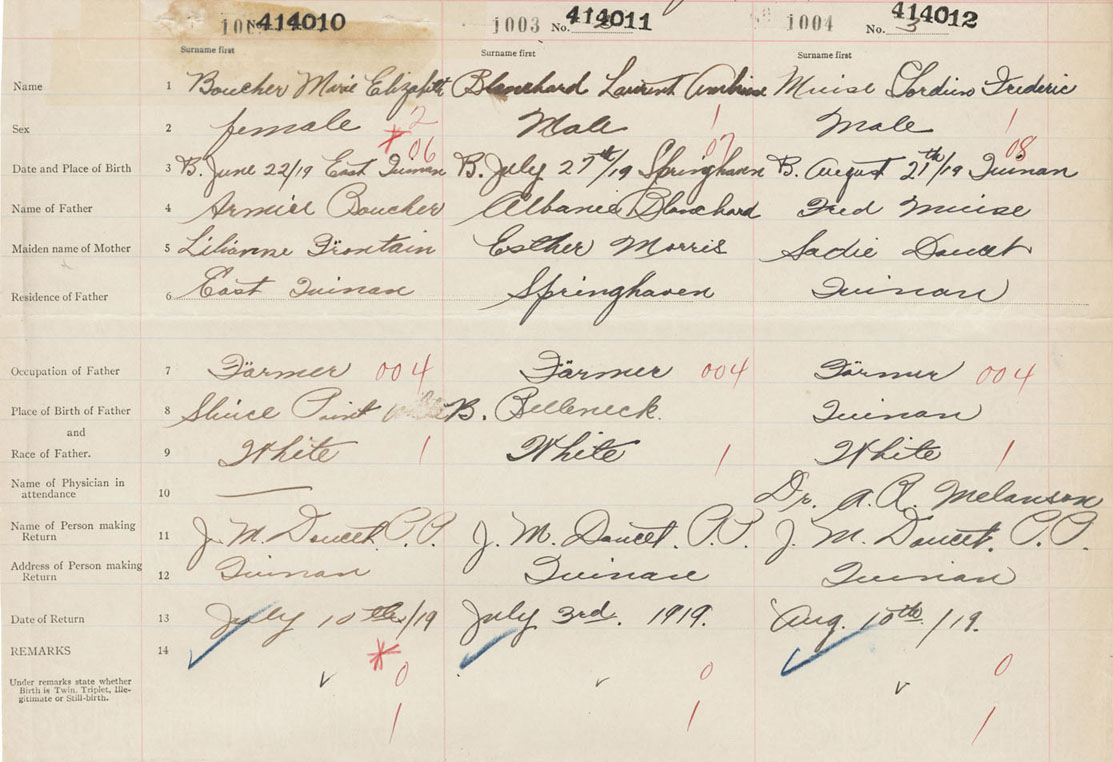 414010 1003 No. 414011 1004 No. 3 414012
Surname first Surname first Surname first
Name 1 Boucher Marie Elizabeth Blanchard Laurent Ambrose Muise Frederic
Sex 2 female 2 Male 1 Male 1
* 06 07 08
Date and Place of Birth 3 B. June 22/19 East Quinan B. July 27th/19 Springhaven B. August 27th/19 Quinan
Name of Father 4 Boucher Albanie Blanchard Fred Muise
Maiden name of Mother 5 Lilianne Frontain Esther Morris Sadie Doucet
Residence of Father 6 East Quinan Springhaven Quinan
Occupation of Father 7 Farmer 004 Farmer 004 Farmer 004
Place of Birth of Father 8 Sluice Point B. Belleneck. Quinan
and
Race of Father. 9 White 1 White 1 White 1
Name of Physician in
attendance 10 — Dr. A. R. Melanson
Name of Person making
Return 11 J. M. Doucet. P.P. J. M. Doucet. P.P. J. M. Doucet. P.P.
Address of Person making
Return 12 Quinan Quinan Quinan
Date of Return 13 July 10th/19 July 3rd. 1919. Aug. 10th/19.
REMARKS 14
* 0 0 0
Under remarks state whether
Birth is Twin, Triplet, Ille-
gitimate or Still-birth.
1 1 1